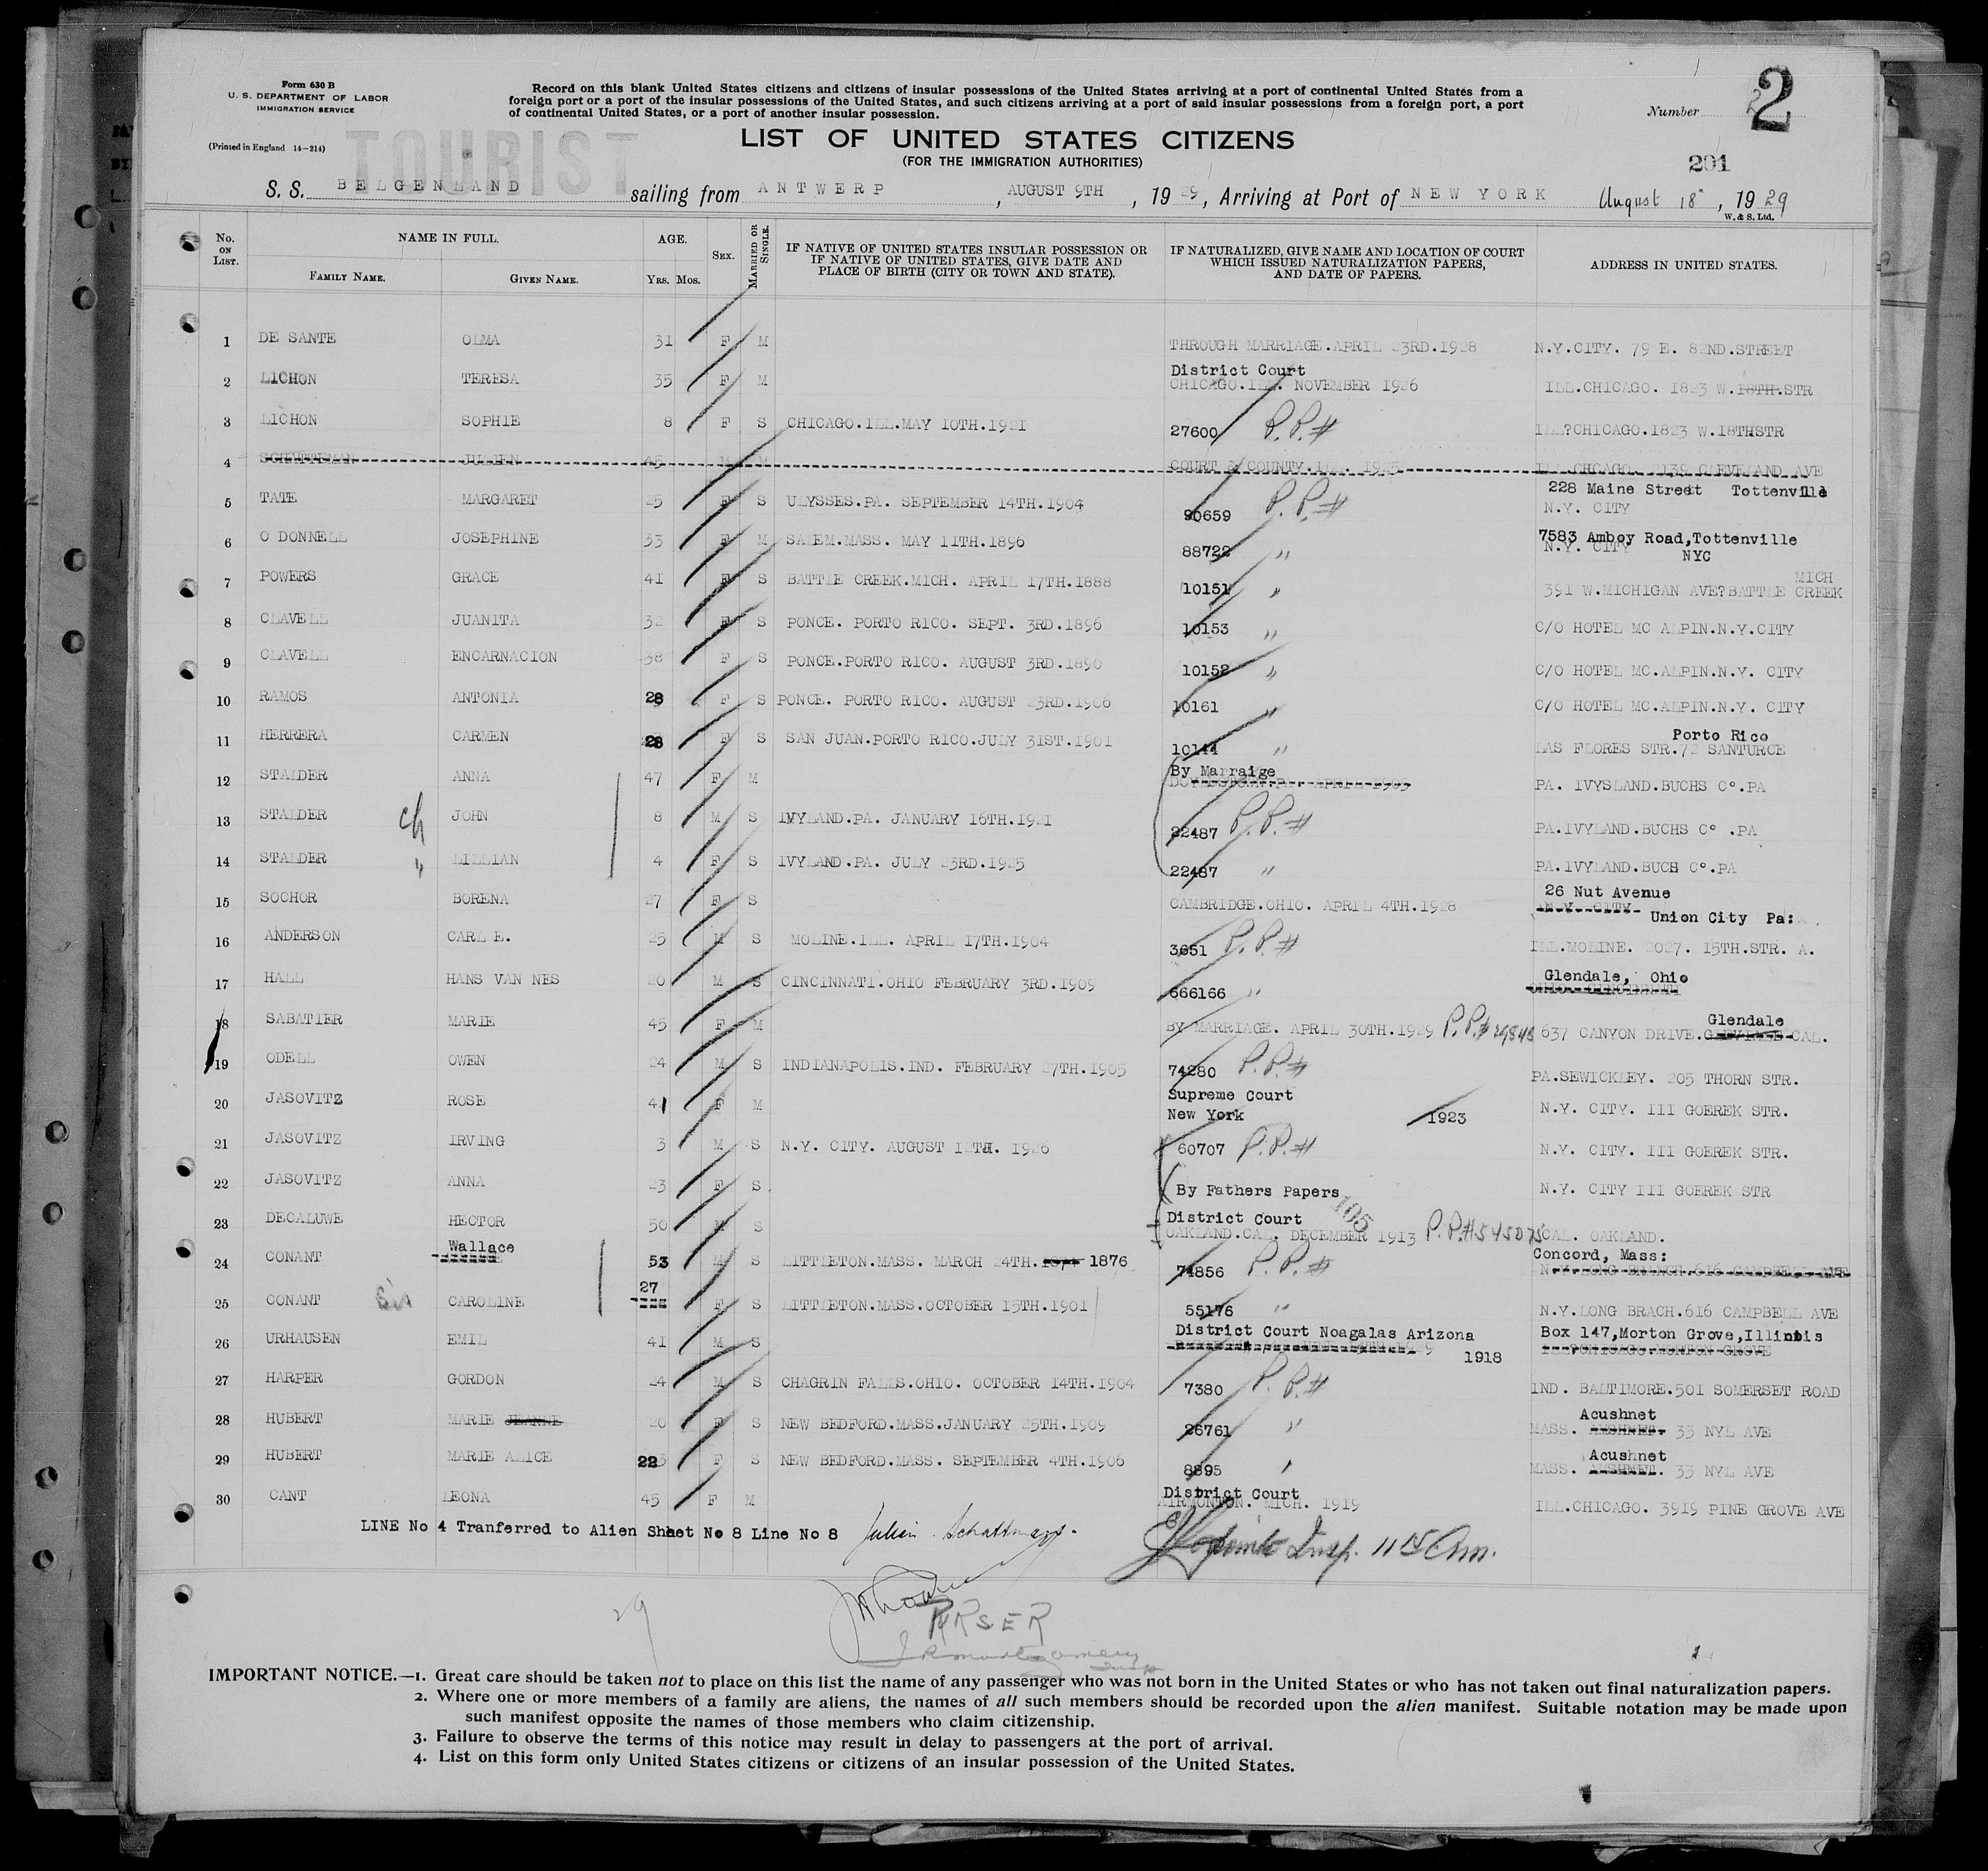 Form 630 B
U. S. DEPARTMENT OF LABOR
IMMIGRATION SERVICE
(Printed in England 14—214)
TOURIST
Record on this blank United States citizens and citizens of insular possessions of the United States arriving at a port of continental United States from a
foreign port or a port of the insular possessions of the United States, and such citizens arriving at a port of said insular possessions from a foreign port, a port
of continental United States, or a port of another insular possession.
Number 2
LIST OF UNITED STATES CITIZENS
(FOR THE IMMIGRATION AUTHORITIES)
201
S. S. BELGENLAND sailing from ANTWERP, AUGUST 9TH, 1929, Arriving at Port of NEW YORK August 18", 1929
W. & S. Ltd.
No. ON LIST. NAME IN FULL. FAMILY NAME. GIVEN NAME. AGE. YRS. MOS. SEX. MARRIED OR SINGLE. IF NATIVE OF UNITED STATES INSULAR POSSESSION OR IF NATIVE OF UNITED STATES, GIVE DATE AND PLACE OF BIRTH (CITY OR TOWN AND STATE). IF NATURALIZED, GIVE NAME AND LOCATION OF COURT WHICH ISSUED NATURALIZATION PAPERS, AND DATE OF PAPERS. ADDRESS IN UNITED STATES.
1 DE SANTE OLMA 31 F M THROUGH MARRIAGE.APRIL 23RD.1928 N.Y.CITY. 79 E. 82ND.STREET
District Court
2 LICHON TERESA 35 F M CHICAGO.ILL. NOVEMBER 1926 ILL.CHICAGO. 1823 W.18TH.STR
3 LICHON SOPHIE 8 F S CHICAGO.ILL.MAY 10TH.1921 27600 P.P.# ILL?CHICAGO.1823 W.18THSTR
4 JULIEN 45 M M COURT & COUNTY.ILL. 1925 ILL.CHICAGO. 2139 CLEVELAND AVE
228 Maine Street Tottenville
5 TATE MARGARET 25 F S ULYSSES.PA. SEPTEMBER 14TH.1904 90659 P.P.# N.Y. CITY
7583 Amboy Road,Tottenville
6 O DONNELL JOSEPHINE 33 F M SALEM.MASS. MAY 11TH.1896 88722 " N.Y. CITY NYC
MICH
7 POWERS GRACE 41 F S BATTLE CREEK.MICH. APRIL 17TH.1888 10151 " 391 W.MICHIGAN AVE?BATTLE CREEK
8 CLAVELL JUANITA 32 F S PONCE. PORTO RICO. SEPT. 3RD.1896 10153 " C/O HOTEL MC ALPIN.N.Y.CITY
9 CLAVELL ENCARNACION 38 F S PONCE.PORTO RICO. AUGUST 3RD.1890 10152 " C/O HOTEL MC.ALPIN.N.Y. CITY
10 RAMOS ANTONIA 28 F S PONCE. PORTO RICO. AUGUST 23RD.1906 10161 " C/O HOTEL MC.ALPIN.N.Y. CITY
Porto Rico
11 HERRERA CARMEN 28 F S SAN JUAN.PORTO RICO.JULY 31ST.1901 10144 " LAS FLORES STR.72 SANTURCE
By Marraige
12 STALDER ANNA 47 F M APRIL 1905 PA. IVYSLAND.BUCHS Co.PA
13 STALDER ch JOHN 8 M S IVYLAND.PA. JANUARY 16TH.1921 22487 P.P.# PA.IVYLAND.BUCHS Co .PA
14 STALDER " LILLIAN 4 F S IVYLAND.PA. JULY 23RD.1925 22487 " PA.IVYLAND.BUCH Co.PA
26 Nut Avenue
15 SOCHOR BORENA 27 F S CAMBRIDGE.OHIO. APRIL 4TH.1928 N.Y. CITY Union City Pa:
16 ANDERSON CARL E. 25 M S MOLINE.ILL. APRIL 17TH.1904 3651 P.P.# ILL.MOLINE. 2027. 15TH.STR. A.
Glendale, Ohio
17 HALL HANS VAN NES 20 M S CINCINNATI.OHIO FEBRUARY 3RD.1909 666166 " OHIO. CINCINNATI
Glendale
18 SABATIER MARIE 45 F M BY MARRIAGE. APRIL 30TH.1929 P.P.# 29848 637 CANYON DRIVE. CAL.
19 ODELL OWEN 24 M S INDIANAPOLIS.IND. FEBRUARY 27TH.1905 74280 P.P.# PA.SEWICKLEY. 205 THORN STR.
Supreme Court
20 JASOVITZ ROSE 41 F M New York 1923 N.Y. CITY. III GOEREK STR.
21 JASOVITZ IRVING 3 M S N.Y. CITY. AUGUST 12TH. 1926 60707 P.P.# N.Y. CITY. III GOEREK STR.
22 JASOVITZ ANNA 23 F S By Fathers Papers N.Y. CITY III GOEREK STR
105
District Court
23 DECALUWE HECTOR 50 M S OAKLAND.CAL. DECEMBER 1913 P.P.#545075 CAL. OAKLAND.
Wallace Concord, Mass:
24 CONANT 53 M S LITTLETON.MASS. MARCH 24TH.1874 1876 74856 P.P.# N.Y.LONG BRANCH.616 CAMPBELL AVE
27
25 CONANT sis CAROLINE F S LITTLETON.MASS.OCTOBER 15TH.1901 55176 " N.Y.LONG BRACH.616 CAMPBELL AVE
District Court Noagalas Arizona Box 147,Morton Grove,Illinois
26 URHAUSEN EMIL 41 M S 1918 ILL?CHICAGO.MORTON GROVE
27 HARPER GORDON 24 M S CHAGRIN FALLS.OHIO. OCTOBER 14TH.1904 7380 P.P.# IND. BALTIMORE.501 SOMERSET ROAD
Acushnet
28 HUBERT MARIE JEANNE 20 F S NEW BEDFORD.MASS.JANUARY 25TH.1909 26761 " MASS. 33 NYL AVE
Acushnet
29 HUBERT MARIE ALICE 22 F S NEW BEDFORD.MASS. SEPTEMBER 4TH.1906 8895 " MASS. 33 NYL AVE
District Court
30 CANT LEONA 45 F M MICH. 1919 ILL.CHICAGO. 3919 PINE GROVE AVE
LINE No 4 Tranferred to Alien Sheet No 8 Line No 8 Julien
Insp. 11 15 Am.
29
PURSER
J R Montgomery
Insp
IMPORTANT NOTICE.—1. Great care should be taken not to place on this list the name of any passenger who was not born in the United States or who has not taken out final naturalization papers.
2. Where one or more members of a family are aliens, the names of all such members should be recorded upon the alien manifest. Suitable notation may be made upon
such manifest opposite the names of those members who claim citizenship.
3. Failure to observe the terms of this notice may result in delay to passengers at the port of arrival.
4. List on this form only United States citizens or citizens of an insular possession of the United States.